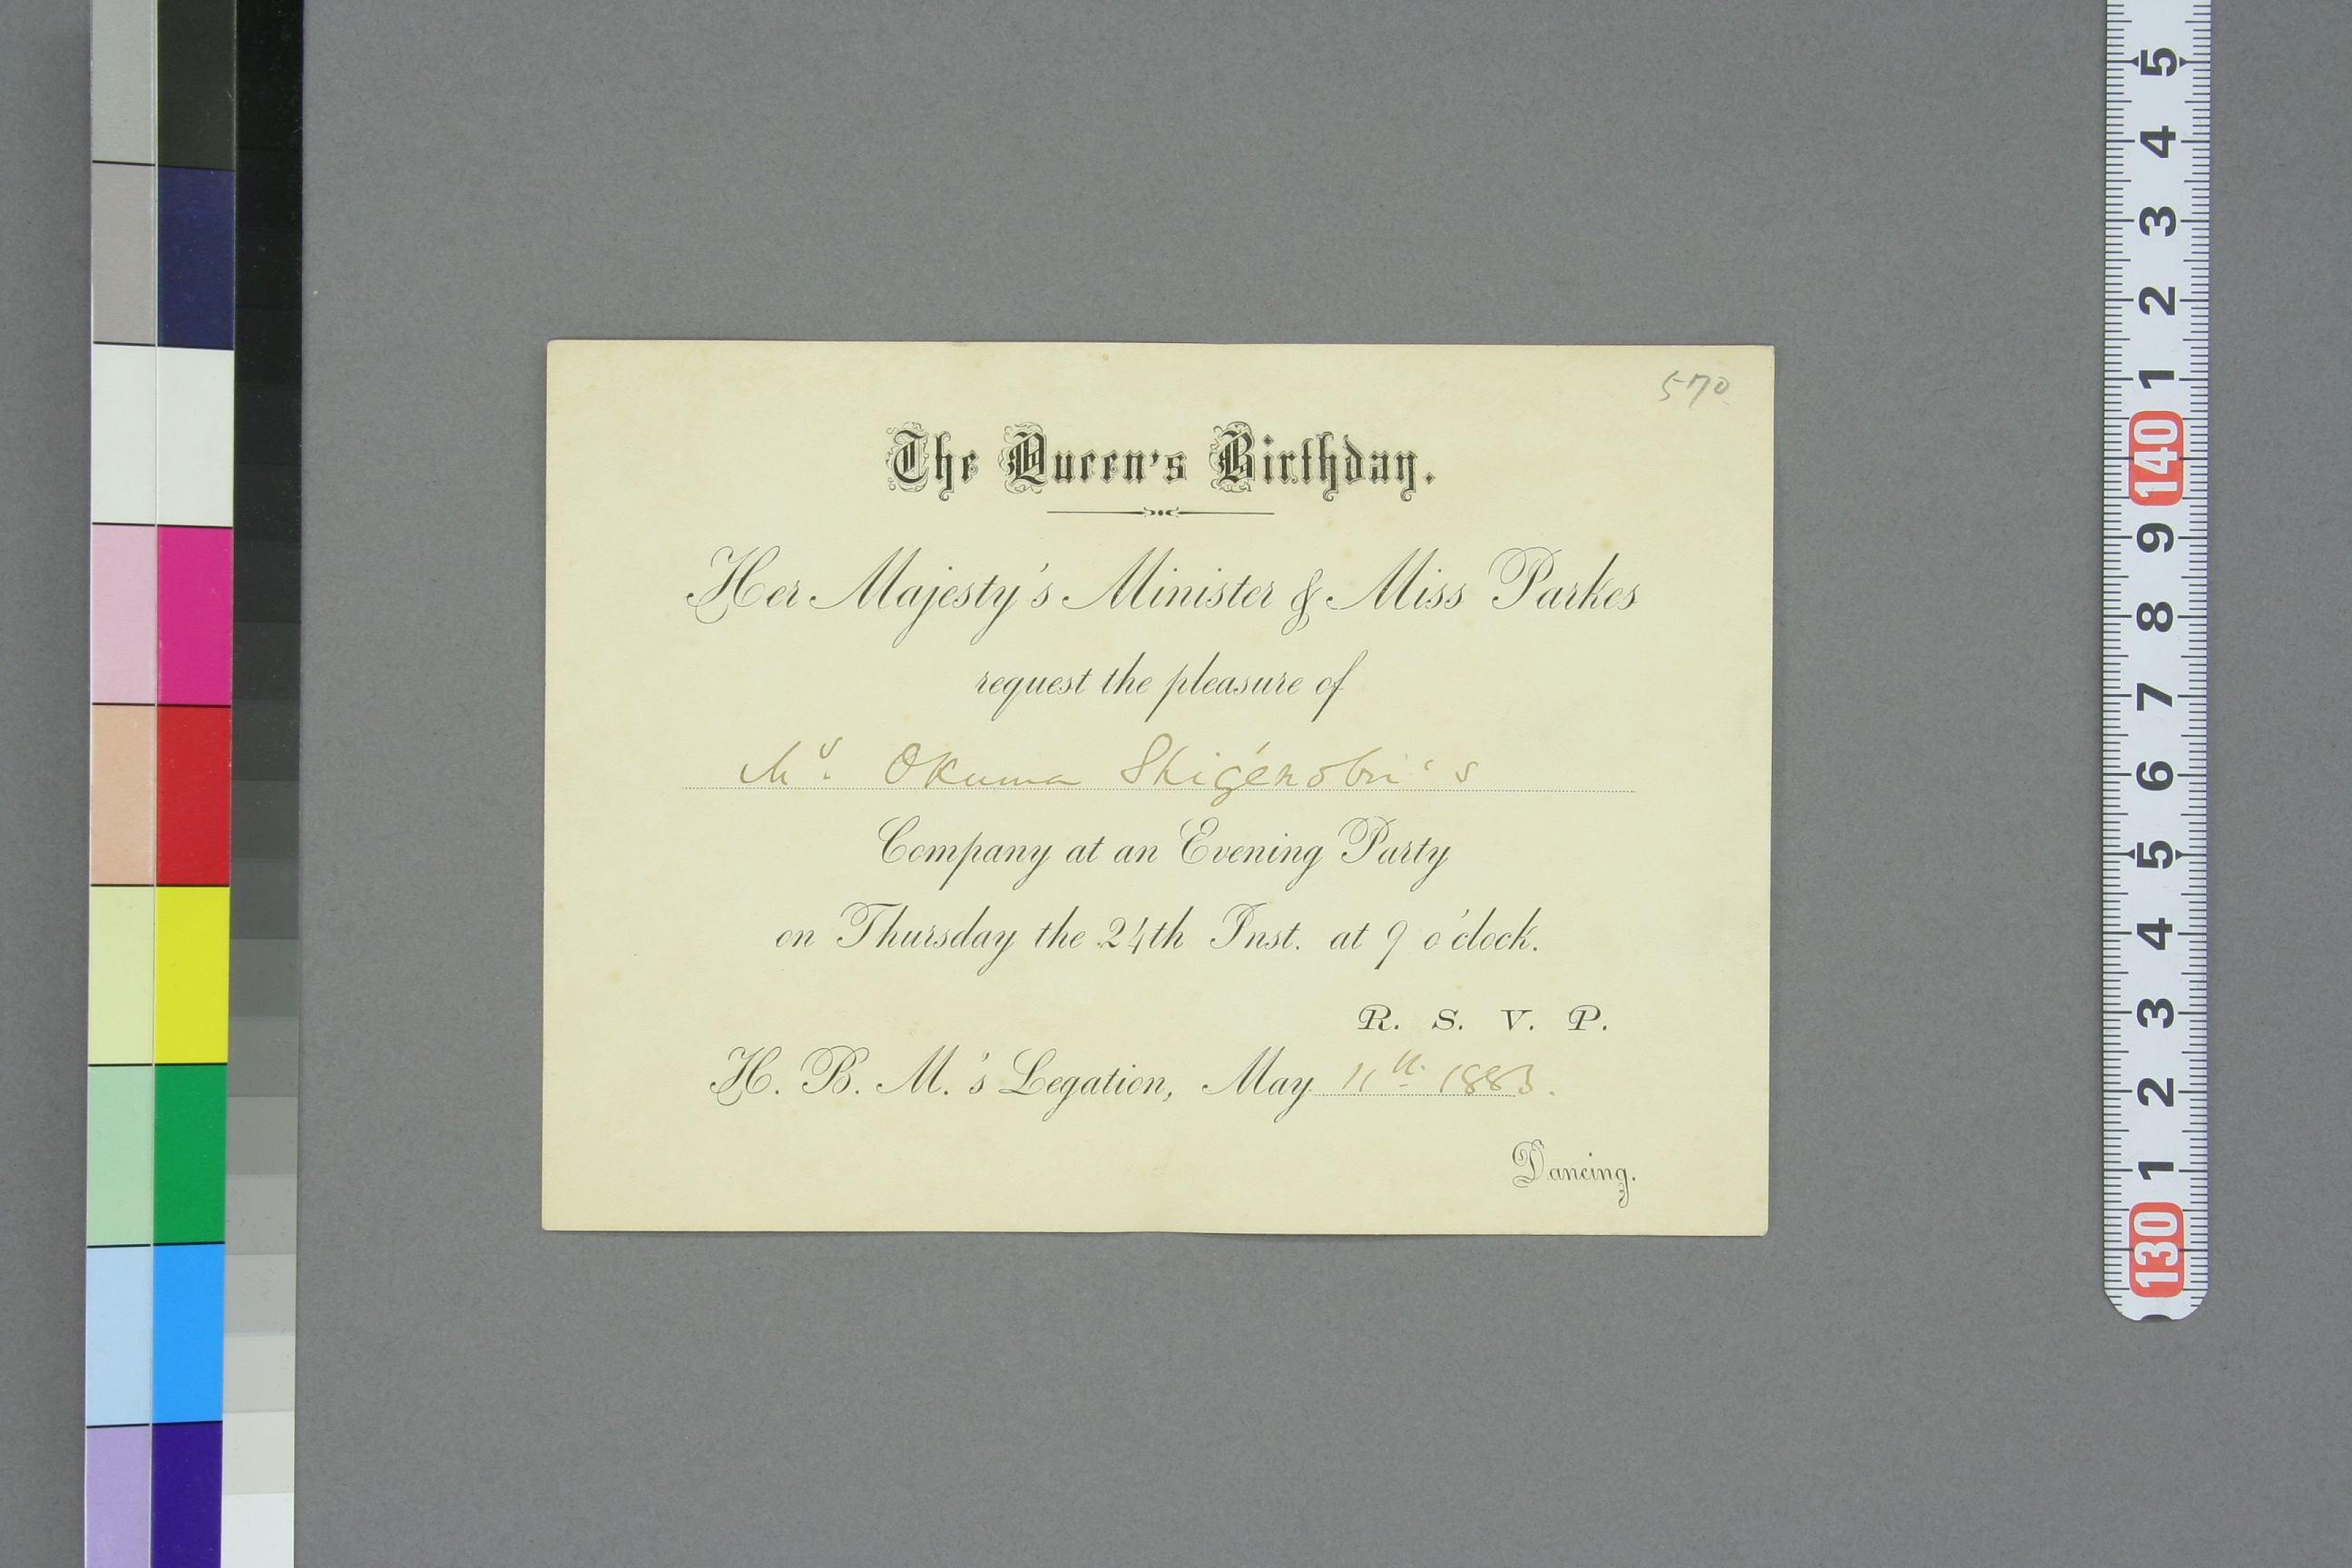 570
The Queen's Birthday.
Her Majesty's Minister & Miss Parkes
request the pleasure of
Mr. Okuma Shigénobu's
Company at an Evening Party
on Thursday the 24th Inst. at 9 o'clock.
R. S. V. P.
H. B. M.'s Legation, May 11th 1883.
Dancing.
5
4
3
2
1
140
9
8
7
6
5
4
3
2
1
130